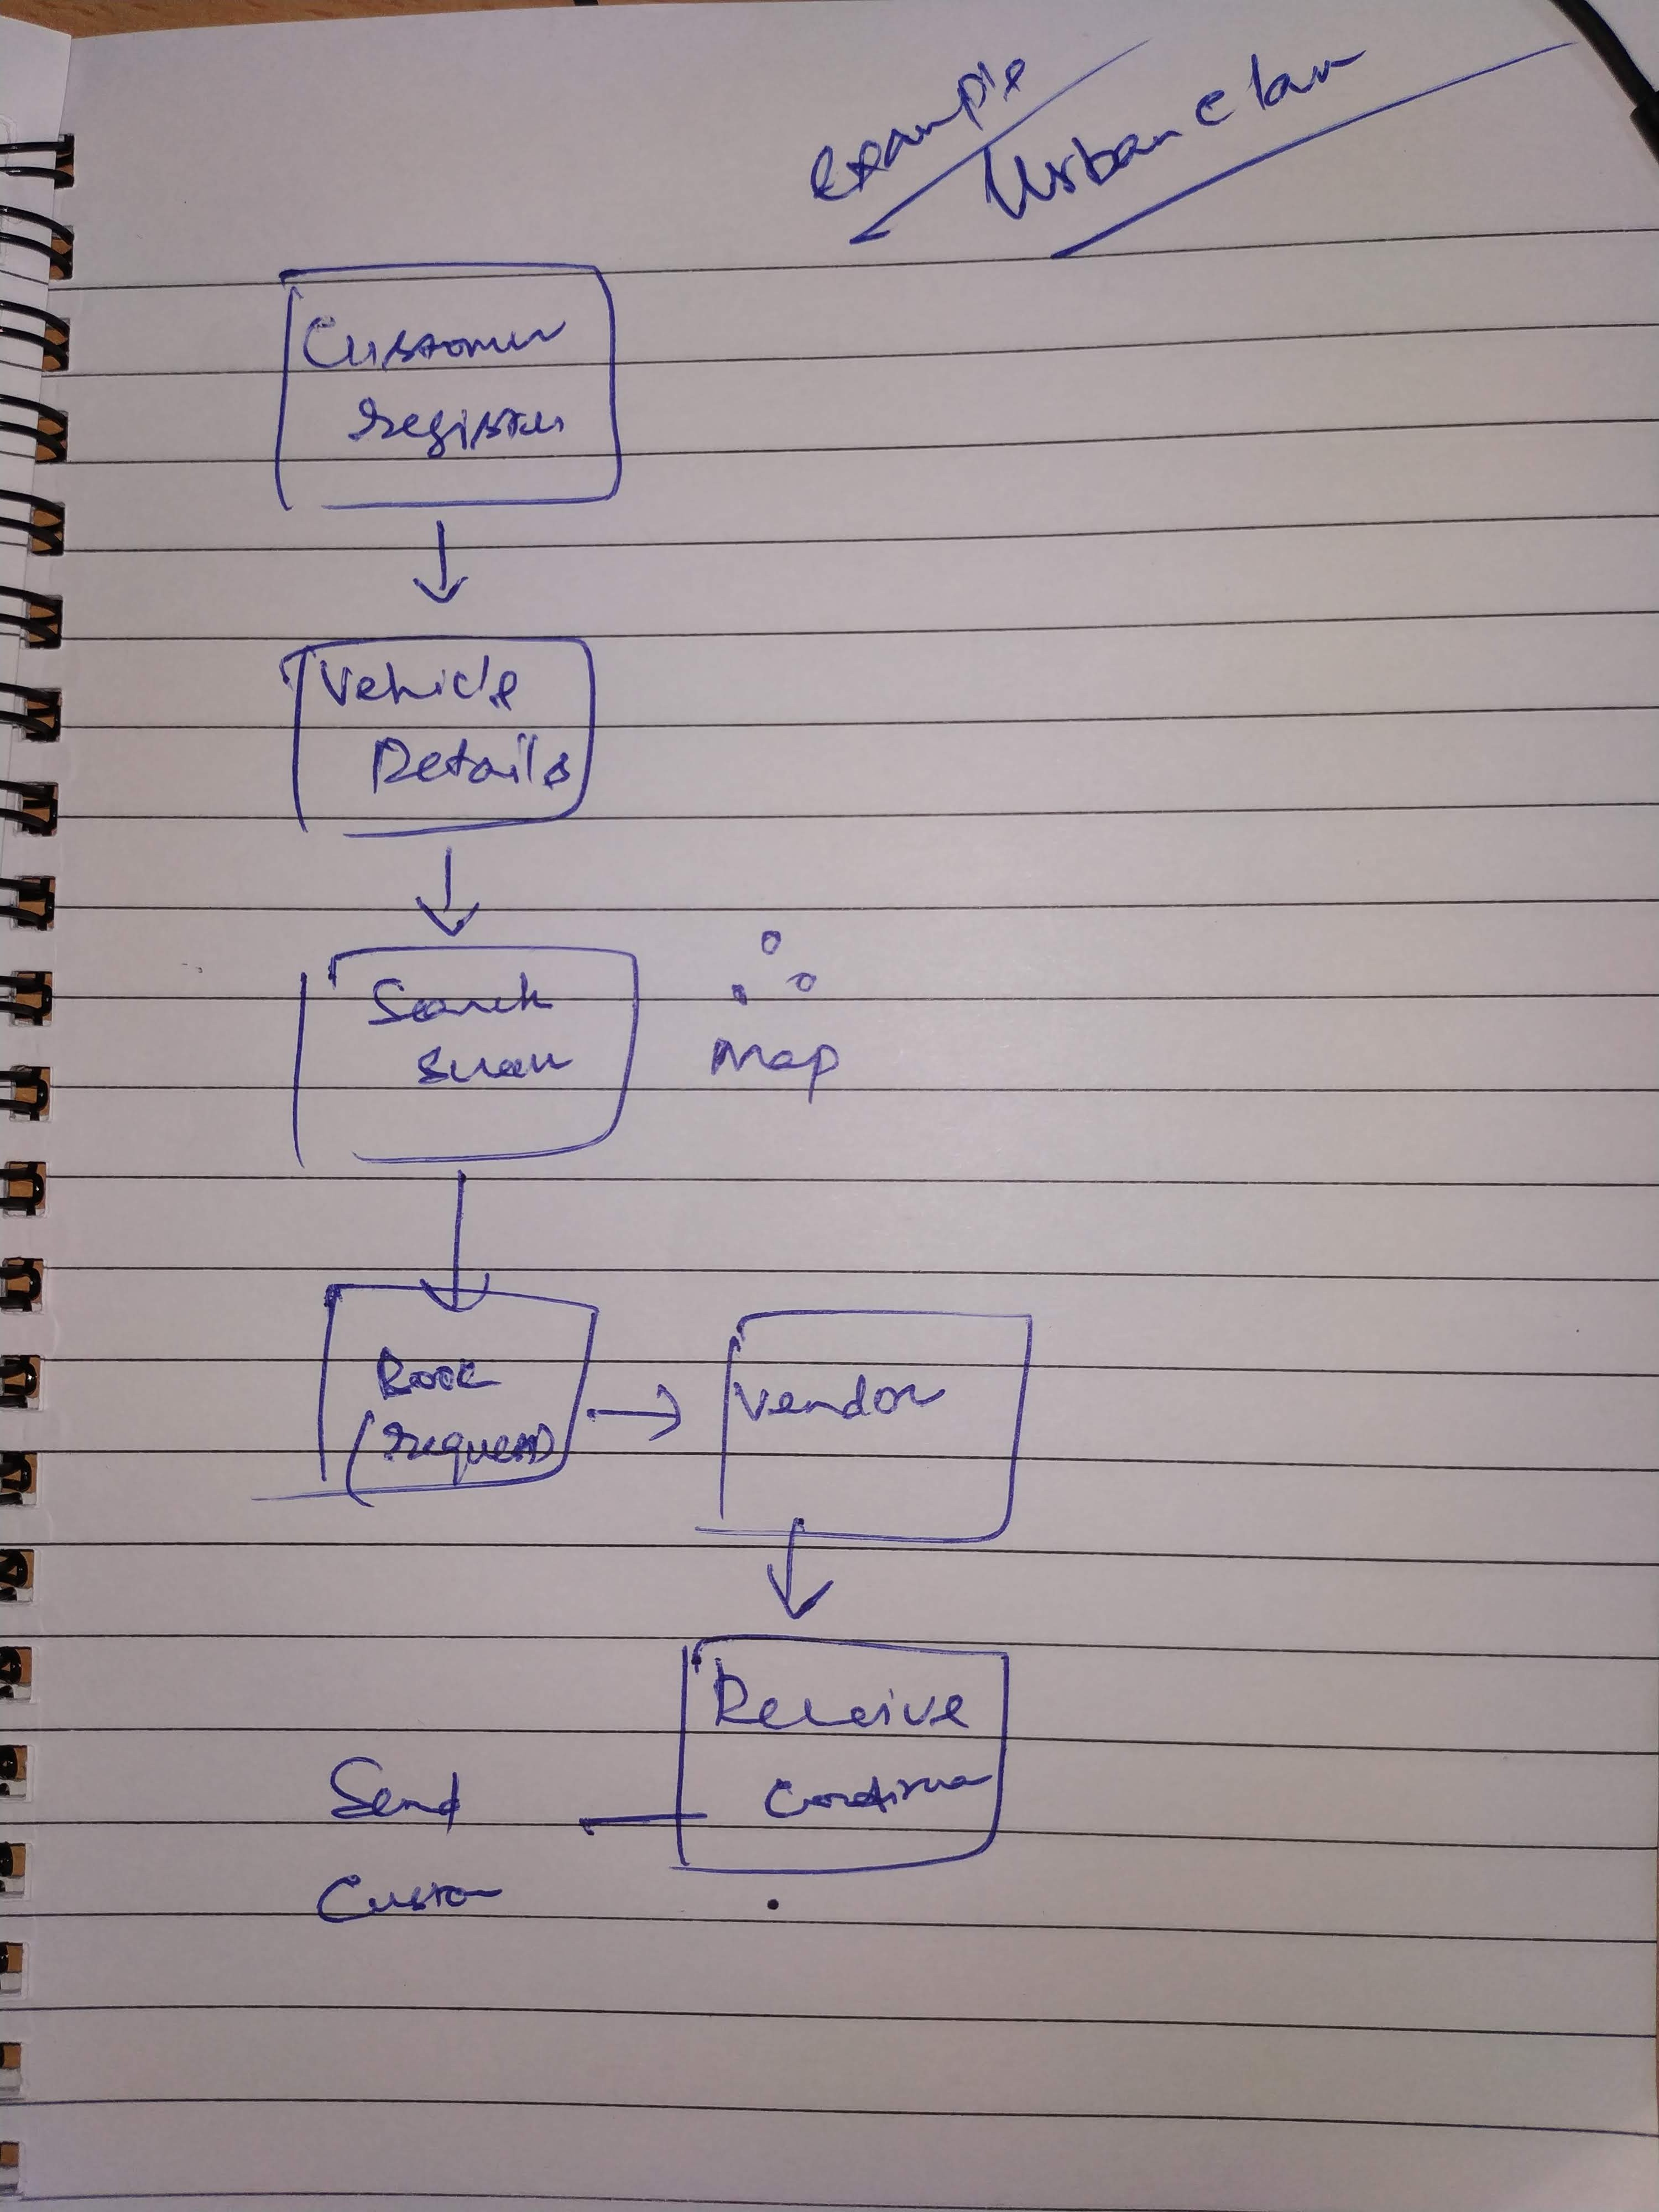 example
Urban clan
Customer
register
Vehicle
Details
Search
Screen
Map
Book
(request)
Vendor
Receive
Confirm
Send
Custom